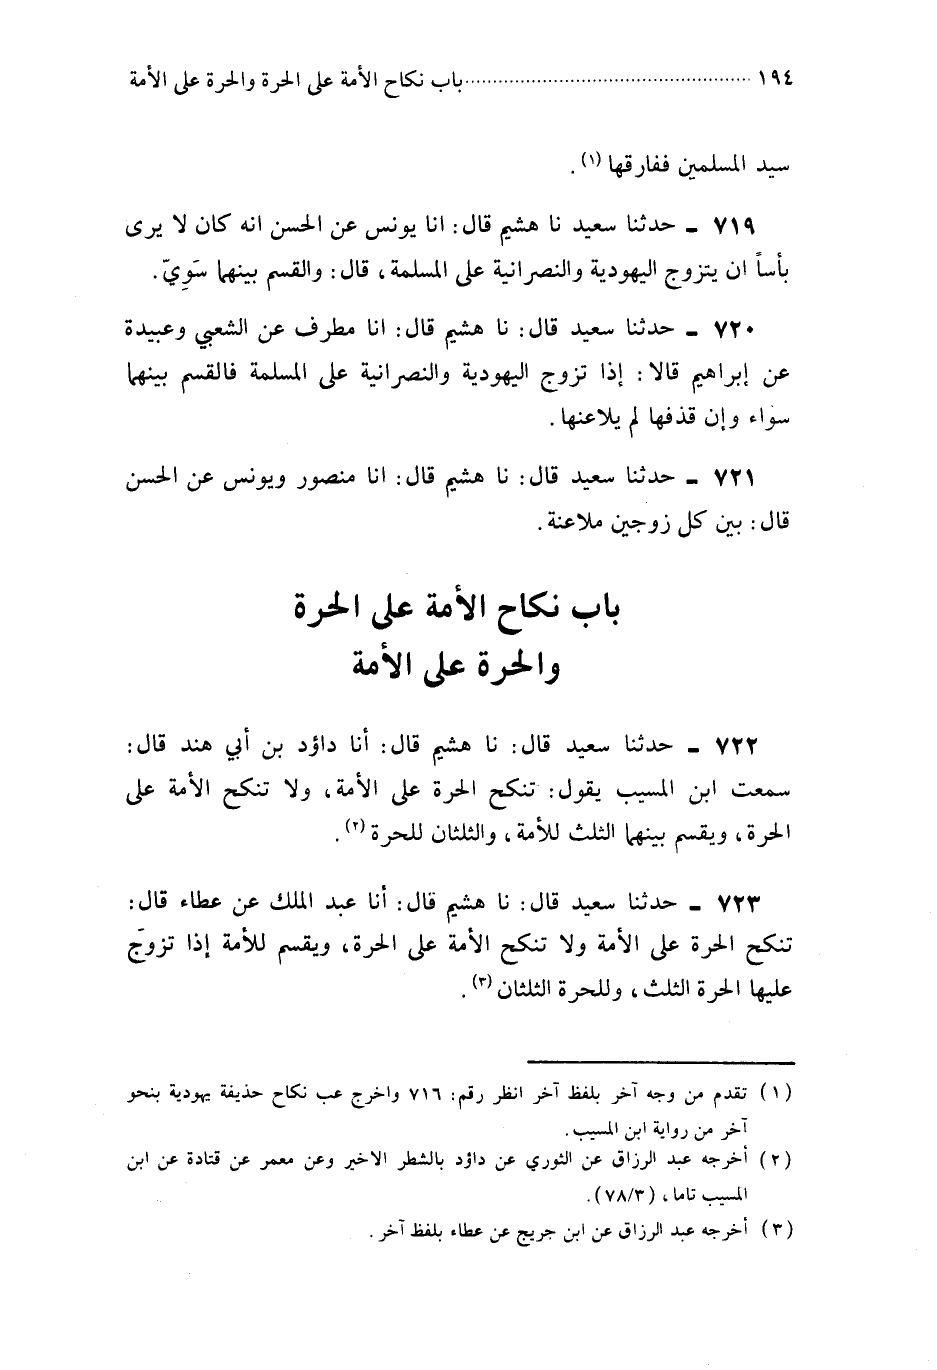 ١٩٤ ............ باب نكاح الأمة على الحرة والحرة على الأمة
سيد المسلمين ففارقها (١) .
٧١٩ ـ حدثنا سعيد نا هشيم قال : انا يونس عن الحسن انه كان لا يرى
بأساً ان يتزوج اليهودية والنصرانية على المسلمة ، قال : والقسم بينهما سَوِيّ .
٧٢٠ ـ حدثنا سعيد قال : نا هشيم قال : انا مطرف عن الشعبي وعبيدة
عن إبراهيم قالا : إذا تزوج اليهودية والنصرانية على المسلمة فالقسم بينهما
سواء وإن قذفها لم يلاعنها .
٧٢١ ـ حدثنا سعيد قال : نا هشيم قال : انا منصور ويونس عن الحسن
قال : بين كل زوجين ملاعنة .
باب نكاح الأمة على الحرة
والحرة على الأمة
٧٢٢ ـ حدثنا سعيد قال : نا هشيم قال : أنا داؤد بن أبي هند قال :
سمعت ابن المسيب يقول : تنكح الحرة على الأمة ، ولا تنكح الأمة على
الحرة ، ويقسم بينهما الثلث للأمة ، والثلثان للحرة (٢) .
٧٢٣ ـ حدثنا سعيد قال : نا هشيم قال : أنا عبد الملك عن عطاء قال :
تنكح الحرة على الأمة ولا تنكح الأمة على الحرة ، ويقسم للأمة إذا تزوّج
عليها الحرة الثلث ، وللحرة الثلثان (٣) .
(١) تقدم من وجه آخر بلفظ آخر انظر رقم : ٧١٦ واخرج عب نكاح حذيفة يهودية بنحو
آخر من رواية ابن المسيب .
(٢) أخرجه عبد الرزاق عن الثوري عن داؤد بالشطر الاخير وعن معمر عن قتادة عن ابن
المسيب تاما ، (٧٨/٣) .
(٣) أخرجه عبد الرزاق عن ابن جريج عن عطاء بلفظ آخر .